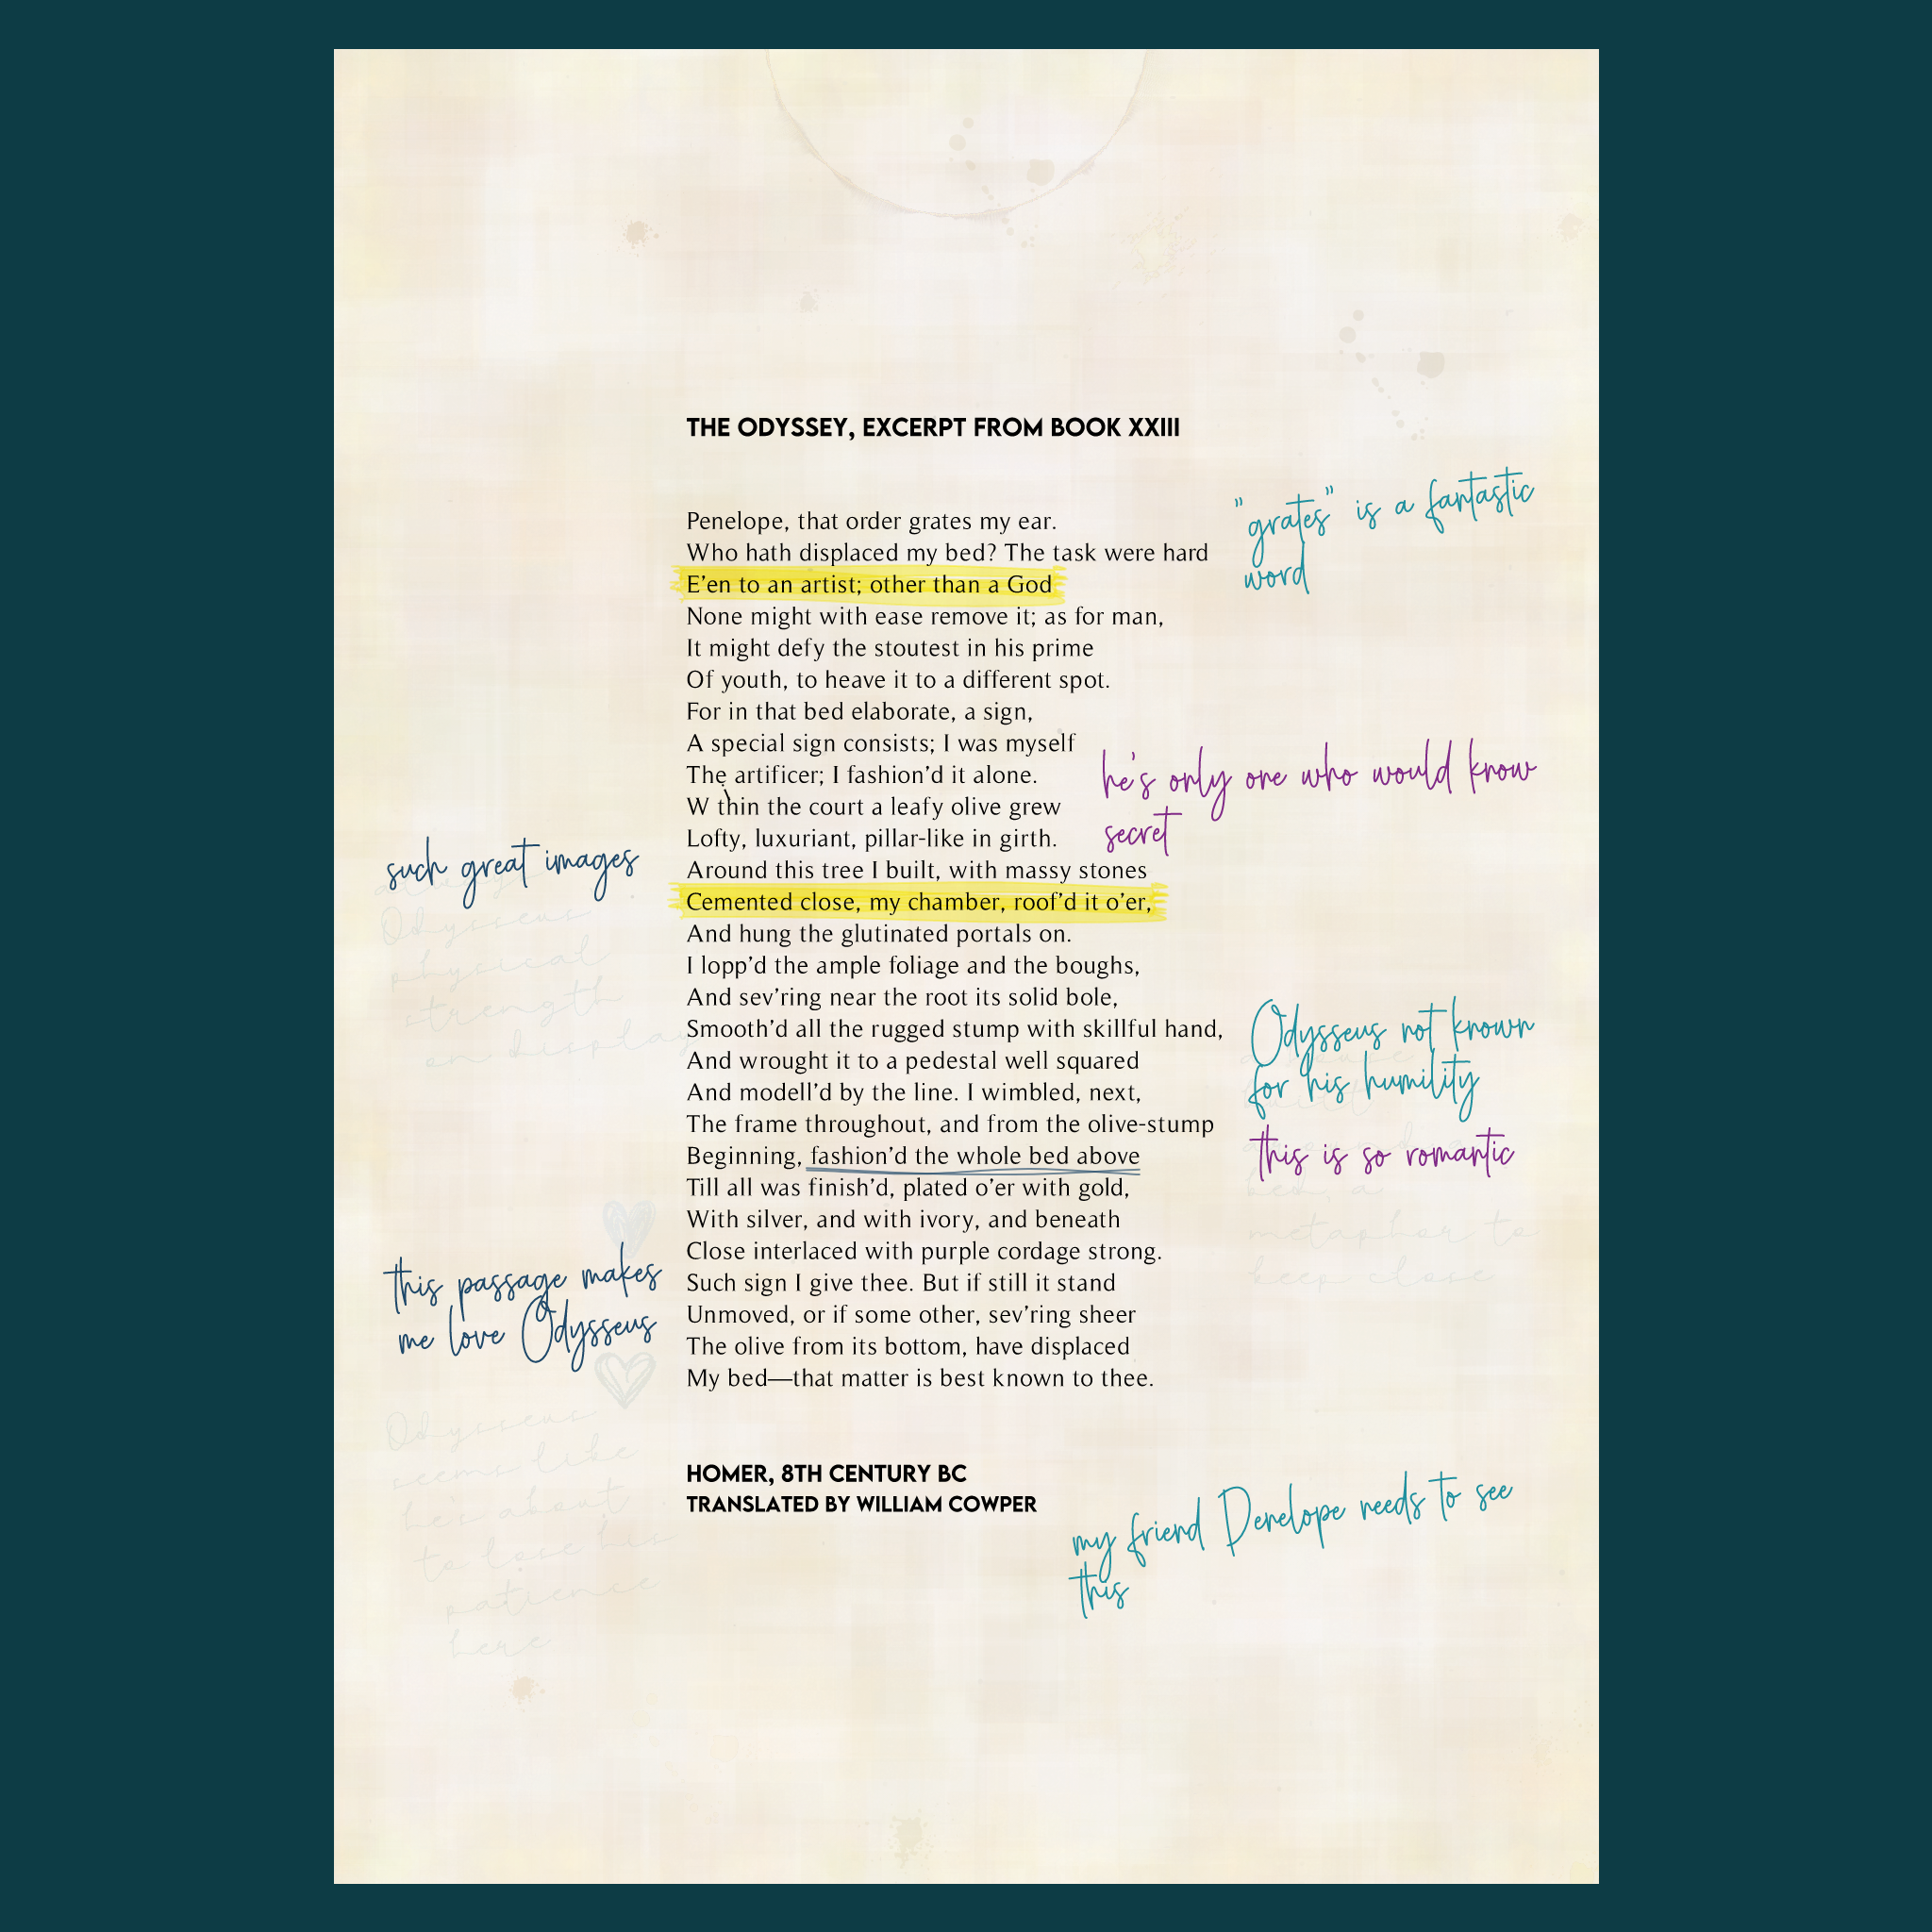 THE ODYSSEY, EXCERPT FROM BOOK XXIII
"grates" is a fantastic
word
Penelope, that order grates my ear.
Who hath displaced my bed? The task were hard
E’en to an artist; other than a God
None might with ease remove it; as for man,
It might defy the stoutest in his prime
Of youth, to heave it to a different spot.
For in that bed elaborate, a sign,
A special sign consists; I was myself
The artificer; I fashion’d it alone.
W thin the court a leafy olive grew
Lofty, luxuriant, pillar-like in girth.
Around this tree I built, with massy stones
Cemented close, my chamber, roof’d it o’er,
And hung the glutinated portals on.
I lopp’d the ample foliage and the boughs,
And sev’ring near the root its solid bole,
Smooth’d all the rugged stump with skillful hand,
And wrought it to a pedestal well squared
And modell’d by the line. I wimbled, next,
The frame throughout, and from the olive-stump
Beginning, fashion’d the whole bed above
Till all was finish’d, plated o’er with gold,
With silver, and with ivory, and beneath
Close interlaced with purple cordage strong.
Such sign I give thee. But if still it stand
Unmoved, or if some other, sev’ring sheer
The olive from its bottom, have displaced
My bed—that matter is best known to thee.
he's only one who would know
secret
such great images
Odysseus
physical
strength
on display
Odysseus not known
for his humility
this is so romantic
bed, a
metaphor to
keep close
this passage makes
me love Odysseus
Odysseus
seems like
he's about
to lose his
patience
here
HOMER, 8TH CENTURY BC
TRANSLATED BY WILLIAM COWPER
my friend Penelope needs to see
this